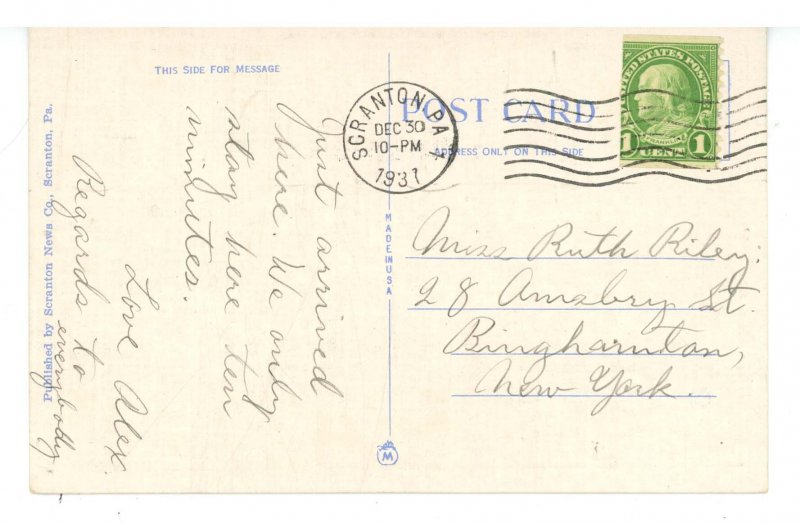 THIS SIDE FOR MESSAGE
POST CARD
ADDRESS ONLY ON THIS SIDE
SCRANTON, PA 1
DEC 30
10-PM
1931
UNITED STATES POSTAGE
FRANKLIN
1 CENT 1
Published by Scranton News Co., Scranton, Pa.
MADE IN USA
M
Just arrived
here. We only
stay here ten
minutes.
Love Alex.
Regards to
everybody.
Miss Ruth Riley.
28 Amsbry St.
Binghamton,
New York.